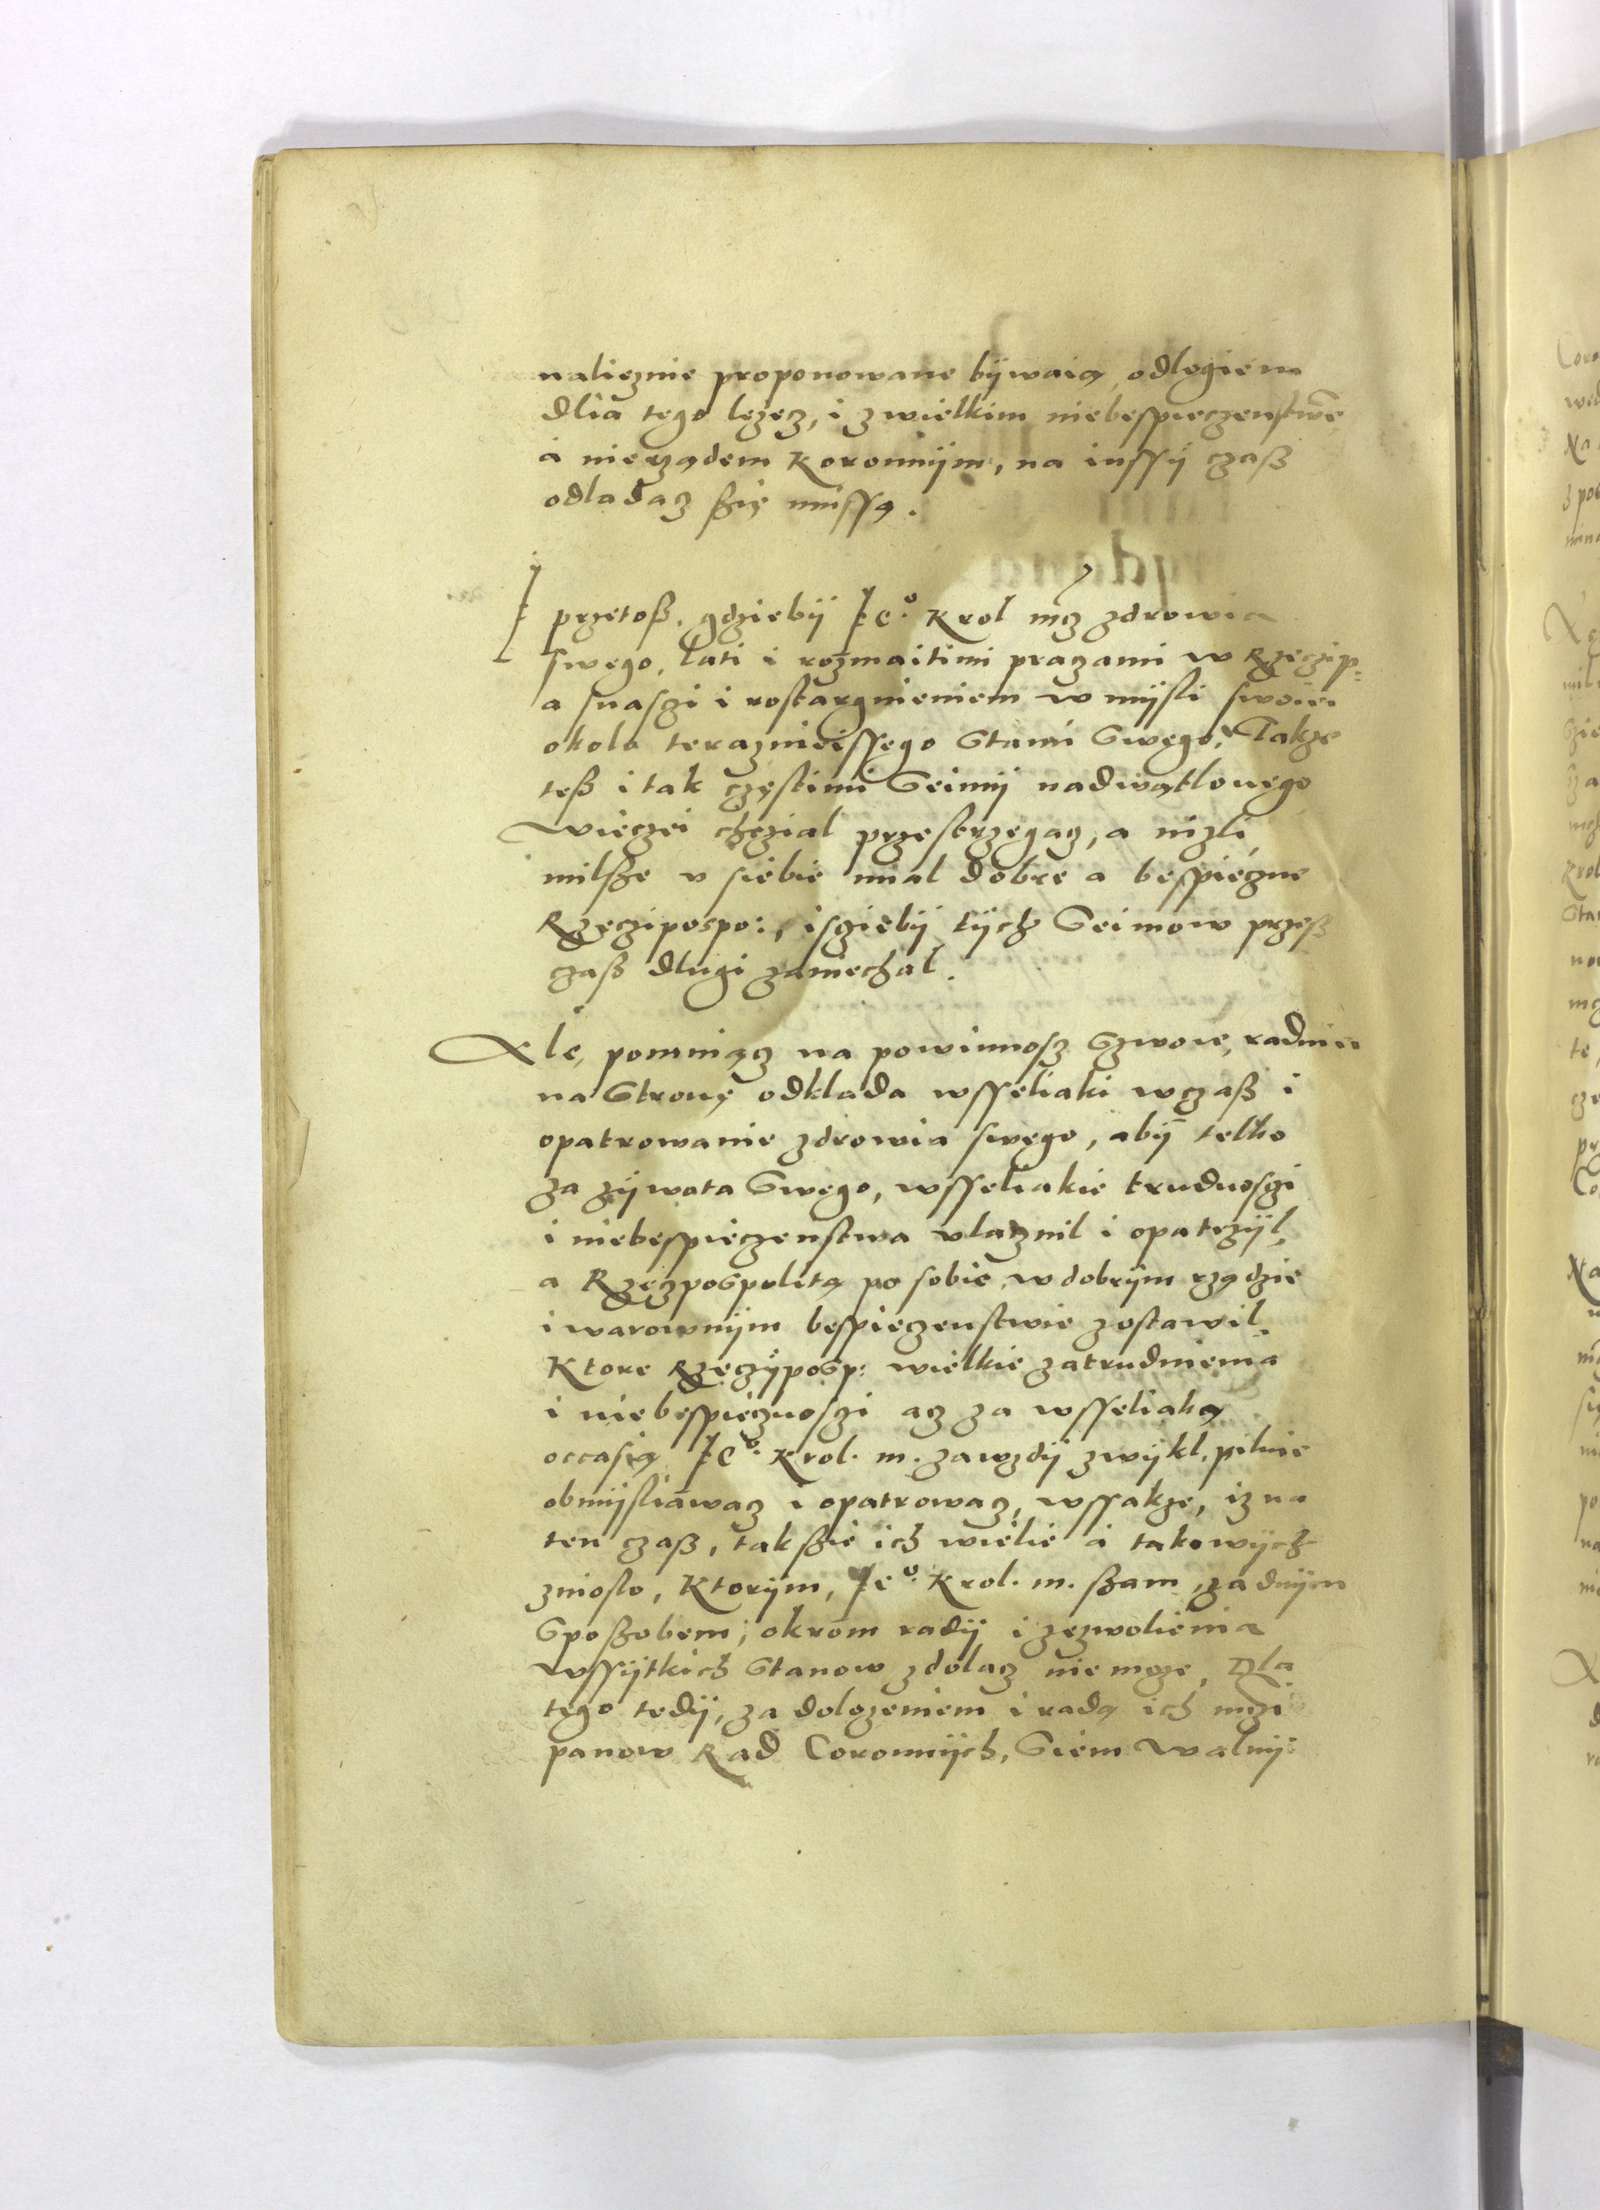 nalieznie proponowane bÿwaią odlogiem
dlia tego lezecz, i z wielkim niebespieczenstwē
a nierządem Koronnÿm, na inssÿ czaß
odladacz ßię mussą.
I przetoß, gdziebÿ Jeº. Krol mcz zdrowia
swego, lati i rozmaitimi praczami w Rzeczip:
a snasczi i rostargnieniem w mÿsli swoiei
okolo teraznieissego Stanu Swego, Takze
teß i tak częstimi Seimÿ nadwątlonego
wieczei chczial przestrzegacz, a nizli
milsze v siebie mial dobre a bespieczne
Rzeczipospo:, isciebÿ tÿch Seimow przeß
czaß dlugi zaniechal.
Ale, pomniącz na powinnoscz Swoie, radniei
na Stronę odklada wsseliaki wczaß i
opatrowanie zdrowia swego, abÿ telko
za zÿwota Swego, wsseliakie trudnosczi
i niebespieczenstwa vlacznil i opatrzÿl,
a Rzeczpospolitą po sobie, w dobrÿm rządzie
i warownÿm bespieczenstwie zostawil.
Ktore Rzeczÿposp: wielkie zatrudnienia
i niebespiecznosczi acz za wsseliaką
occasią Jeº. Krol. m. zawzdÿ zwÿkl, pilnie
obmÿsliawacz i opatrowacz, wssakze, iz na
ten czaß, tak ßie ich wielie a takowÿch
znioslo, Ktorÿm, Jeº. Krol. m. ßam, zadnÿm
Sposzobem, okrom radÿ i zezwolienia
wssÿtkich Stanow zdolacz nie moze, Dla
tego tedÿ, za dolozeniem i radą ich mczi
panow Rad Coronnÿch, Siem Walnÿ